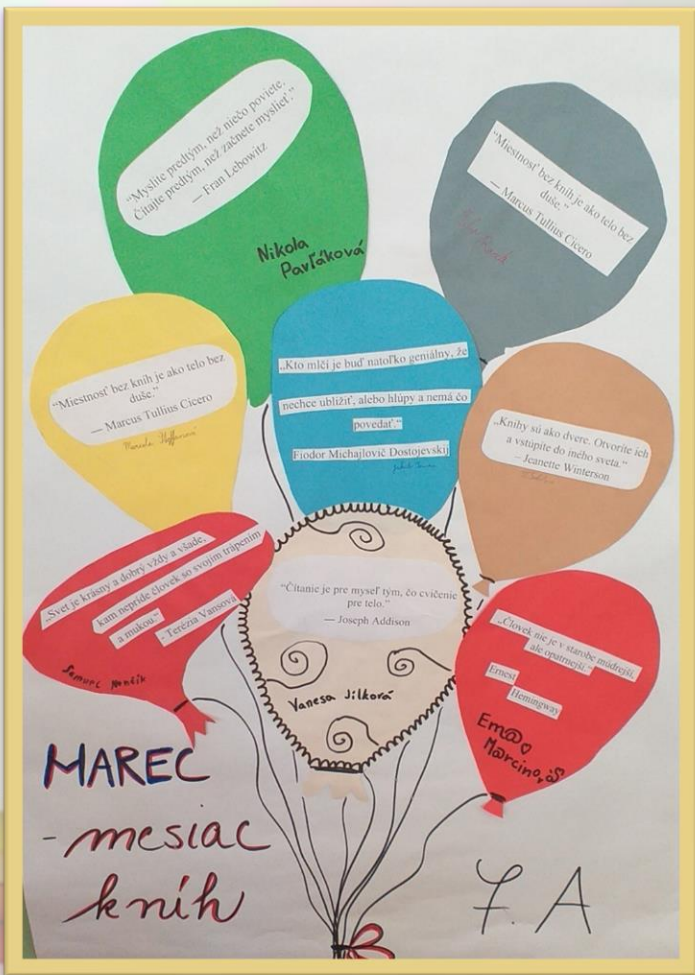 “Myslite predtým, než niečo poviete.
Čítajte predtým, než začnete myslieť.”
— Fran Lebowitz
Nikola
Pavľáková
“Miestnosť bez kníh je ako telo bez
duše.”
— Marcus Tullius Cicero
“Miestnosť bez kníh je ako telo bez
duše.”
— Marcus Tullius Cicero
„Kto mlčí je buď natoľko geniálny, že
nechce ublížiť, alebo hlúpy a nemá čo
povedať.“
Fiodor Michajlovič Dostojevskij
„Knihy sú ako dvere. Otvoríte ich
a vstúpite do iného sveta.“
– Jeanette Winterson
„Svet je krásny a dobrý vždy a všade,
kam nepríde človek so svojím trápením
a mukou.“
- Terézia Vansová
Samuel
“Čítanie je pre myseľ tým, čo cvičenie
pre telo.”
— Joseph Addison
Vanesa Jilková
„Človek nie je v starobe múdrejší,
ale opatrnejší.“
Ernest
Hemingway
Em@
MAREC
- mesiac
kníh
7. A